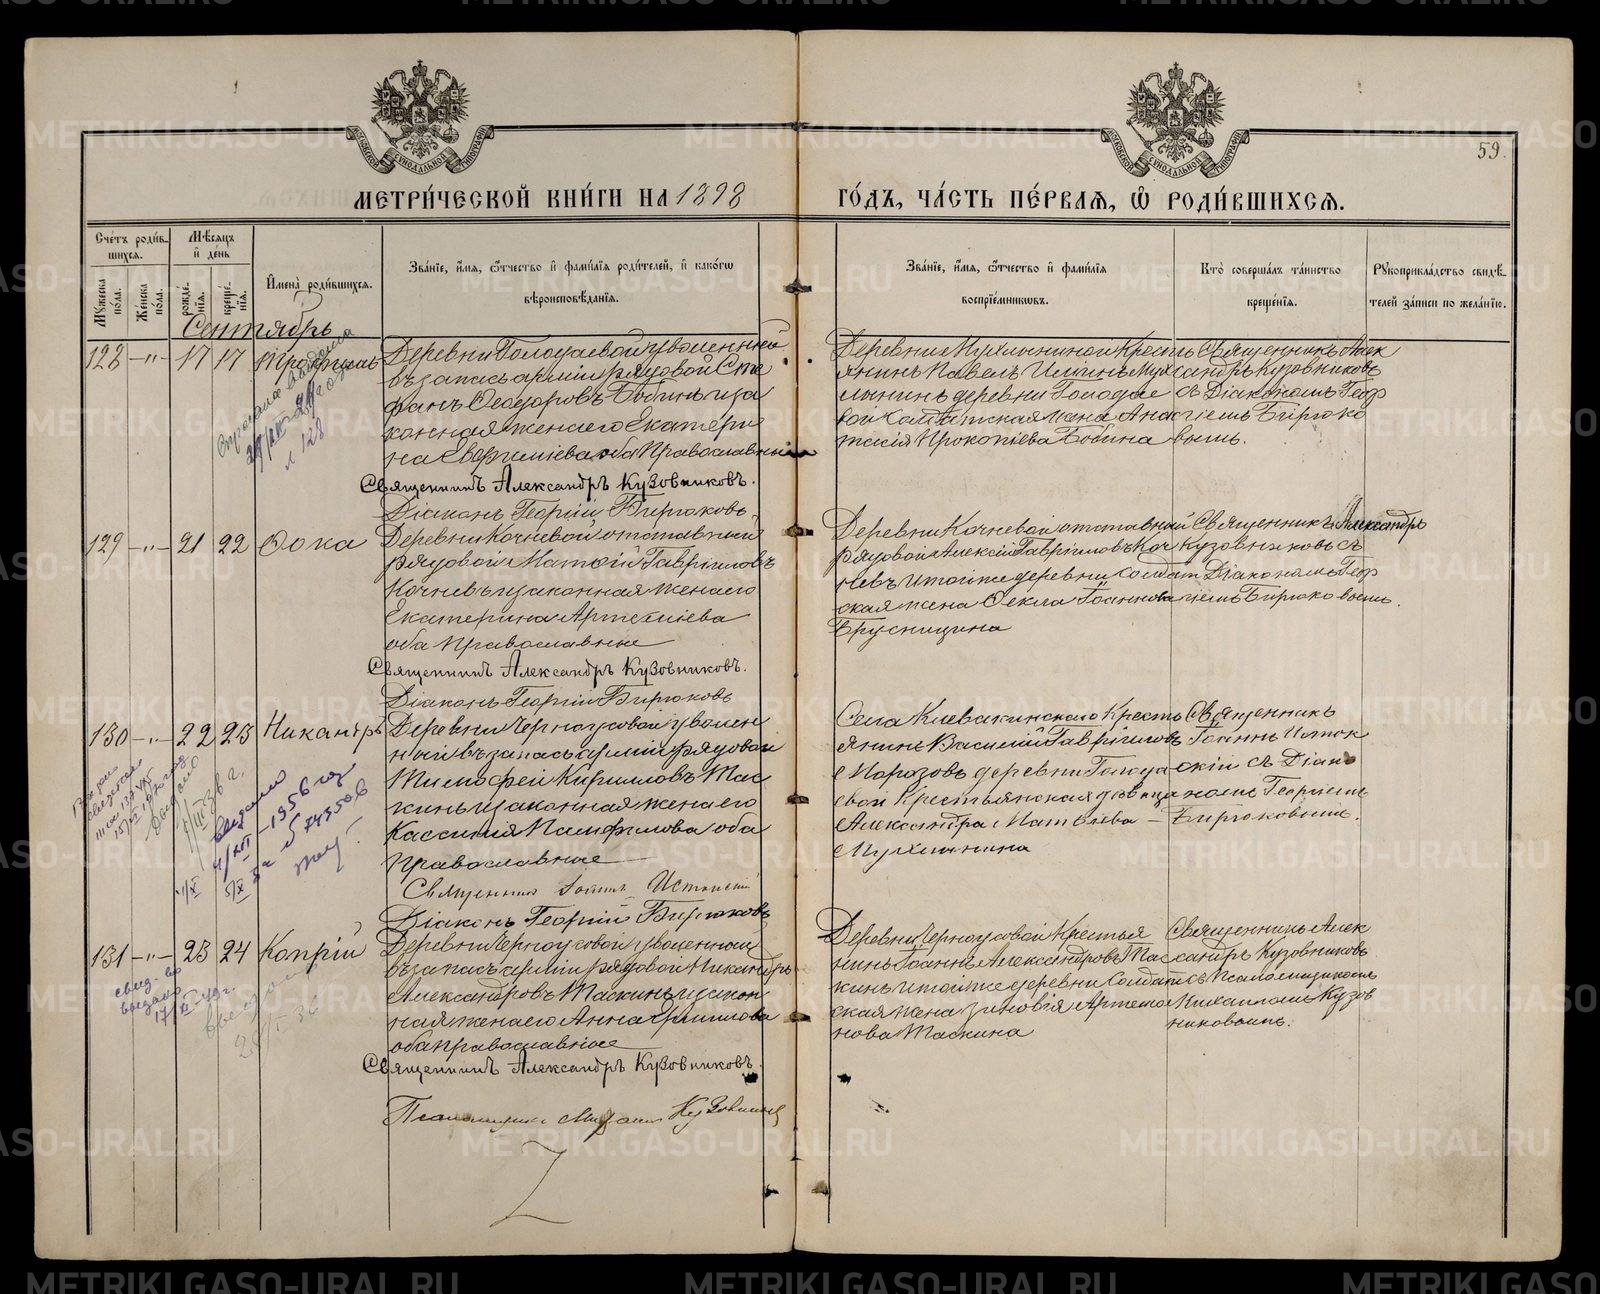 МЕТРИ́ЧЕСКОЙ КНИ́ГИ НА 1898
ГО́ДЪ, ЧА́СТЬ ПЕ́РВАѦ, Ѽ РОДИ́ВШИХСѦ.
59.
Сче́тъ роди́в-
шихся.
Мѣ́сяцъ
и҆ де́нь
Мꙋ́жеска по́ла.
Же́нска по́ла.
рожде́-
нїѧ.
креще́-
нїѧ.
И҆мена̀ роди́вшихся.
Зва́нїе, и҆́мѧ, ѻ҆́тчество и҆ фами́лїѧ роди́телей, и҆ како́гѡ
вѣроисповѣ́данїѧ.
Зва́нїе, и҆́мѧ, ѻ҆́тчество и҆ фами́лїѧ
воспрїе́мниковъ.
Кто̀ соверша́лъ та́инство
креще́нїѧ.
Рꙋкоприкла́дство свидѣ́-
телей за́писи по жела́нїю.
Сентябрь
128 —"— 17 17 Трофимъ
Деревни Голодаевой уволенный
въ запасъ арміи рядовой Сте
фанъ Ѳеодоровъ Бобинъ и за
конная жена его Екатери
на Евфиміева оба Православныя
Священникъ Александръ Кузовниковъ.
Діаконъ Георгій Бирюковъ
Деревни Мухлыниной Кресть
янинъ Павелъ Ильинъ Мух
лынинъ деревни Голодае
вой Солдатская жена Анас
тасія Прокопіева Бобина
Священникъ Алек
сандръ Кузовниковъ
съ Діакономъ Геор
гіемъ Бирюко
вымъ.
л 128
129 —"— 21 22 Фока
Деревни Кочневой отставный
рядовой Матѳій Гавріиловъ
Кочневъ и законная жена его
Екатерина Артеміева
оба православные
Священникъ Александръ Кузовниковъ.
Діаконъ Георгій Бирюковъ
Деревни Кочневой отставный
рядовой Алексій Гавріиловъ Коч
невъ и той же деревни солдат
ская жена Ѳекла Іоаннова
Брусницина
Священникъ Александръ
Кузовниковъ съ
Діакономъ Геор
гіемъ Бирюковымъ.
130 —"— 22 23 Никандръ
Деревни Черноусовой уволен
ный въ запасъ арміи рядовой
Тимофей Кирилловъ Тас
кинъ и законная жена его
Кассинія Памфилова оба
православные
Священникъ Іоаннъ Истокскій
Діаконъ Георгій Бирюковъ
Села Клевакинскаго Кресть
янинъ Василій Гавріиловъ
Морозовъ деревни Голода
евой Крестьянская девица
Александра Матвіева
Мухлынина
Священникъ
Іоаннъ Исток
скій съ Діако
номъ Георгіемъ
Бирюковымъ.
1956 год
131 —"— 23 24 Капрій
Деревни Черноусовой уволенный
въ запасъ арміи рядовой Никандръ
Александровъ Таскинъ и закон
ная жена его Анна Кириллова
оба православные
Священникъ Александръ Кузовниковъ.
Псаломщикъ Михаилъ Кузовниковъ
Деревни Черноусовой Крестья
нинъ Іоаннъ Александровъ Тас
кинъ и той же деревни солдат
ская жена Зиновія Артемо
нова Таскина
Священникъ Алек
сандръ Кузовниковъ
съ Псаломщикомъ
Михаиломъ Кузов
никовымъ.
METRIKI.GASO-URAL.RU